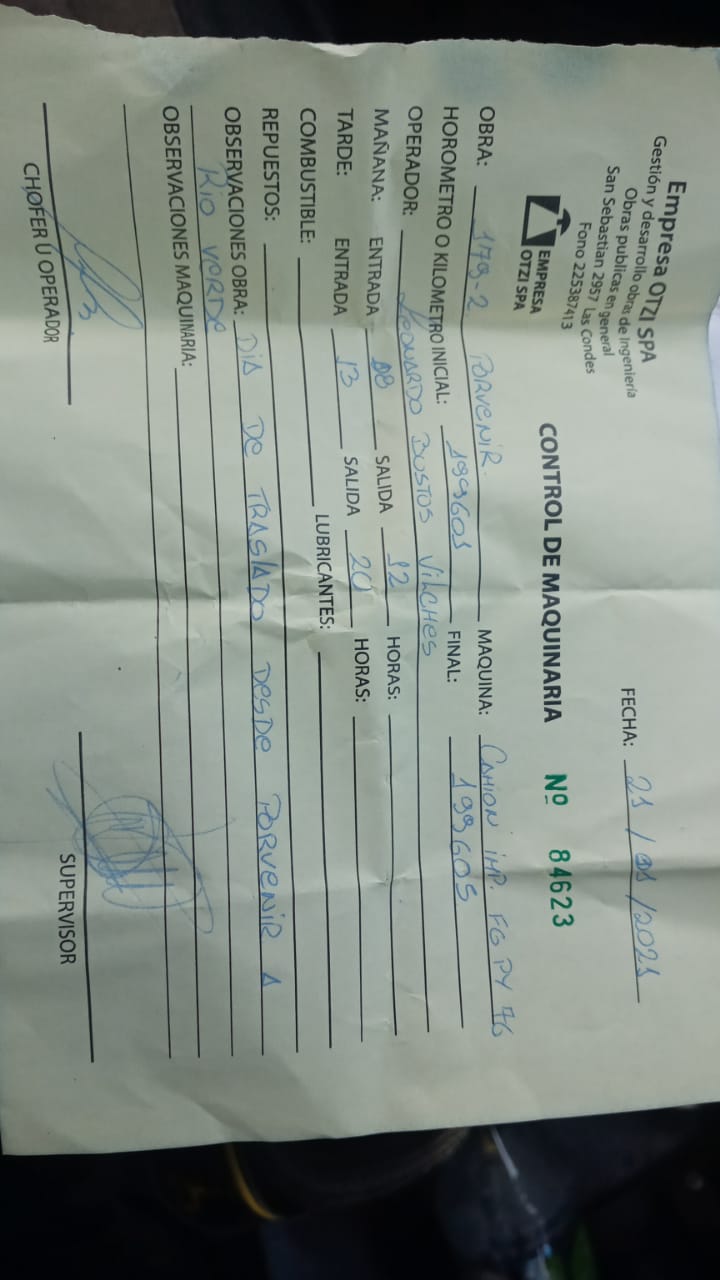 Empresa OTZI SPA
Gestión y desarrollo obras de Ingeniería
Obras publicas en general
San Sebastian 2957 Las Condes
Fono 225387413
EMPRESA
OTZI SPA
FECHA: 21 / 01 / 2021
CONTROL DE MAQUINARIA Nº 84623
OBRA: 179-2 PORVENIR. MAQUINA: CAMION IMP. FG PY 76
HOROMETRO O KILOMETRO INICIAL: 199601 FINAL: 199605
OPERADOR: LEONARDO BUSTOS VILCHES
MAÑANA: ENTRADA 08 SALIDA 12 HORAS:
TARDE: ENTRADA 13 SALIDA 20 HORAS:
COMBUSTIBLE: LUBRICANTES:
REPUESTOS:
OBSERVACIONES OBRA: DIA DE TRASLADO DESDE PORVENIR A
RIO VERDE
OBSERVACIONES MAQUINARIA:
CHOFER U OPERADOR
SUPERVISOR